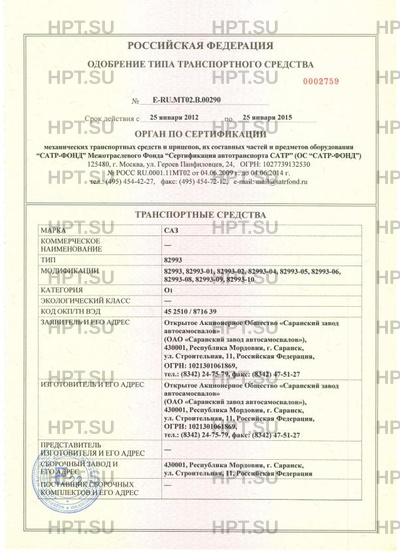 НРТ.SU НРТ.SU НРТ.SU
РОССИЙСКАЯ ФЕДЕРАЦИЯ
ОДОБРЕНИЕ ТИПА ТРАНСПОРТНОГО СРЕДСТВА
0002759
№ E-RU.MT02.B.00290
Срок действия с 25 января 2012 по 25 января 2015
ОРГАН ПО СЕРТИФИКАЦИИ
механических транспортных средств и прицепов, их составных частей и предметов оборудования
“САТР-ФОНД” Межотраслевого Фонда “Сертификация автотранспорта САТР” (ОС “САТР-ФОНД”)
125480, г. Москва, ул. Героев Панфиловцев, 24, ОГРН: 1027739132530
№ РОСС RU.0001.11МТ02 от 04.06.2009 г. до 04.06.2014 г.
тел.: (495) 454-42-27, факс: (495) 454-72-12, e-mail: mail@satrfond.ru
ТРАНСПОРТНЫЕ СРЕДСТВА
МАРКА САЗ
КОММЕРЧЕСКОЕ НАИМЕНОВАНИЕ —
ТИП 82993
МОДИФИКАЦИИ 82993, 82993-01, 82993-02, 82993-04, 82993-05, 82993-06,
82993-08, 82993-09, 82993-10.
КАТЕГОРИЯ О1
ЭКОЛОГИЧЕСКИЙ КЛАСС —
КОД ОКП/ТН ВЭД 45 2510 / 8716 39
ЗАЯВИТЕЛЬ И ЕГО АДРЕС Открытое Акционерное Общество «Саранский завод
автосамосвалов»
(ОАО «Саранский завод автосамосвалов»),
430001, Республика Мордовия, г. Саранск,
ул. Строительная, 11, Российская Федерация,
ОГРН: 1021301061869,
тел.: (8342) 24-75-79, факс: (8342) 47-51-27
ИЗГОТОВИТЕЛЬ И ЕГО АДРЕС Открытое Акционерное Общество «Саранский завод
автосамосвалов»
(ОАО «Саранский завод автосамосвалов»),
430001, Республика Мордовия, г. Саранск,
ул. Строительная, 11, Российская Федерация,
ОГРН: 1021301061869,
тел.: (8342) 24-75-79, факс: (8342) 47-51-27
ПРЕДСТАВИТЕЛЬ
ИЗГОТОВИТЕЛЯ И ЕГО АДРЕС —
СБОРОЧНЫЙ ЗАВОД И
ЕГО АДРЕС 430001, Республика Мордовия, г. Саранск,
ул. Строительная, 11, Российская Федерация
ПОСТАВЩИК СБОРОЧНЫХ
КОМПЛЕКТОВ И ЕГО АДРЕС —
НРТ.SU НРТ.SU НРТ.SU